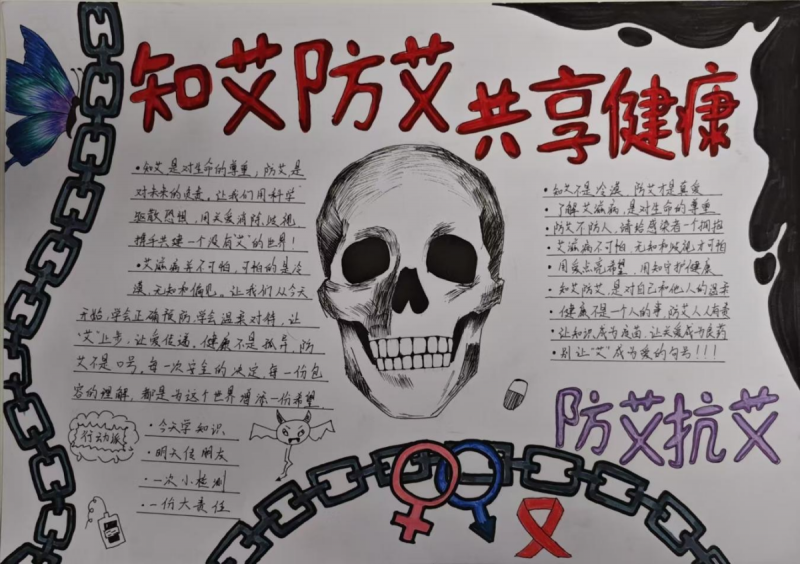 知艾防艾 共享健康
•知艾是对生命的尊重,防艾是
对未来的负责。让我们用科学
驱散恐惧,用关爱消除歧视
携手共建一个没有"艾"的世界!
•艾滋病并不可怕,可怕的是冷
漠、无知和偏见。让我们从今天
开始,学会正确预防,学会温柔对待,让
"艾"止步,让爱传递,健康不是孤岛,防
艾不是口号,每一次安全的决定,每一份包
容的理解,都是为这个世界增添一份希望
行动派
•今天学知识
•明天传朋友
•一次小检测
•一份大责任
•知艾不是冷漠 防艾才是真爱
•了解艾滋病,是对生命的尊重
•防艾不防人,请给感染者一个拥抱
•艾滋病不可怕,无知和歧视才可怕
•用爱点亮希望,用知守护健康
•知艾防艾,是对自己和他人的温柔
•健康不是一个人的事,防艾人人有责
•让知识成为疫苗,让关爱成为良药
•别让"艾"成为爱的句号!!!
防艾抗艾